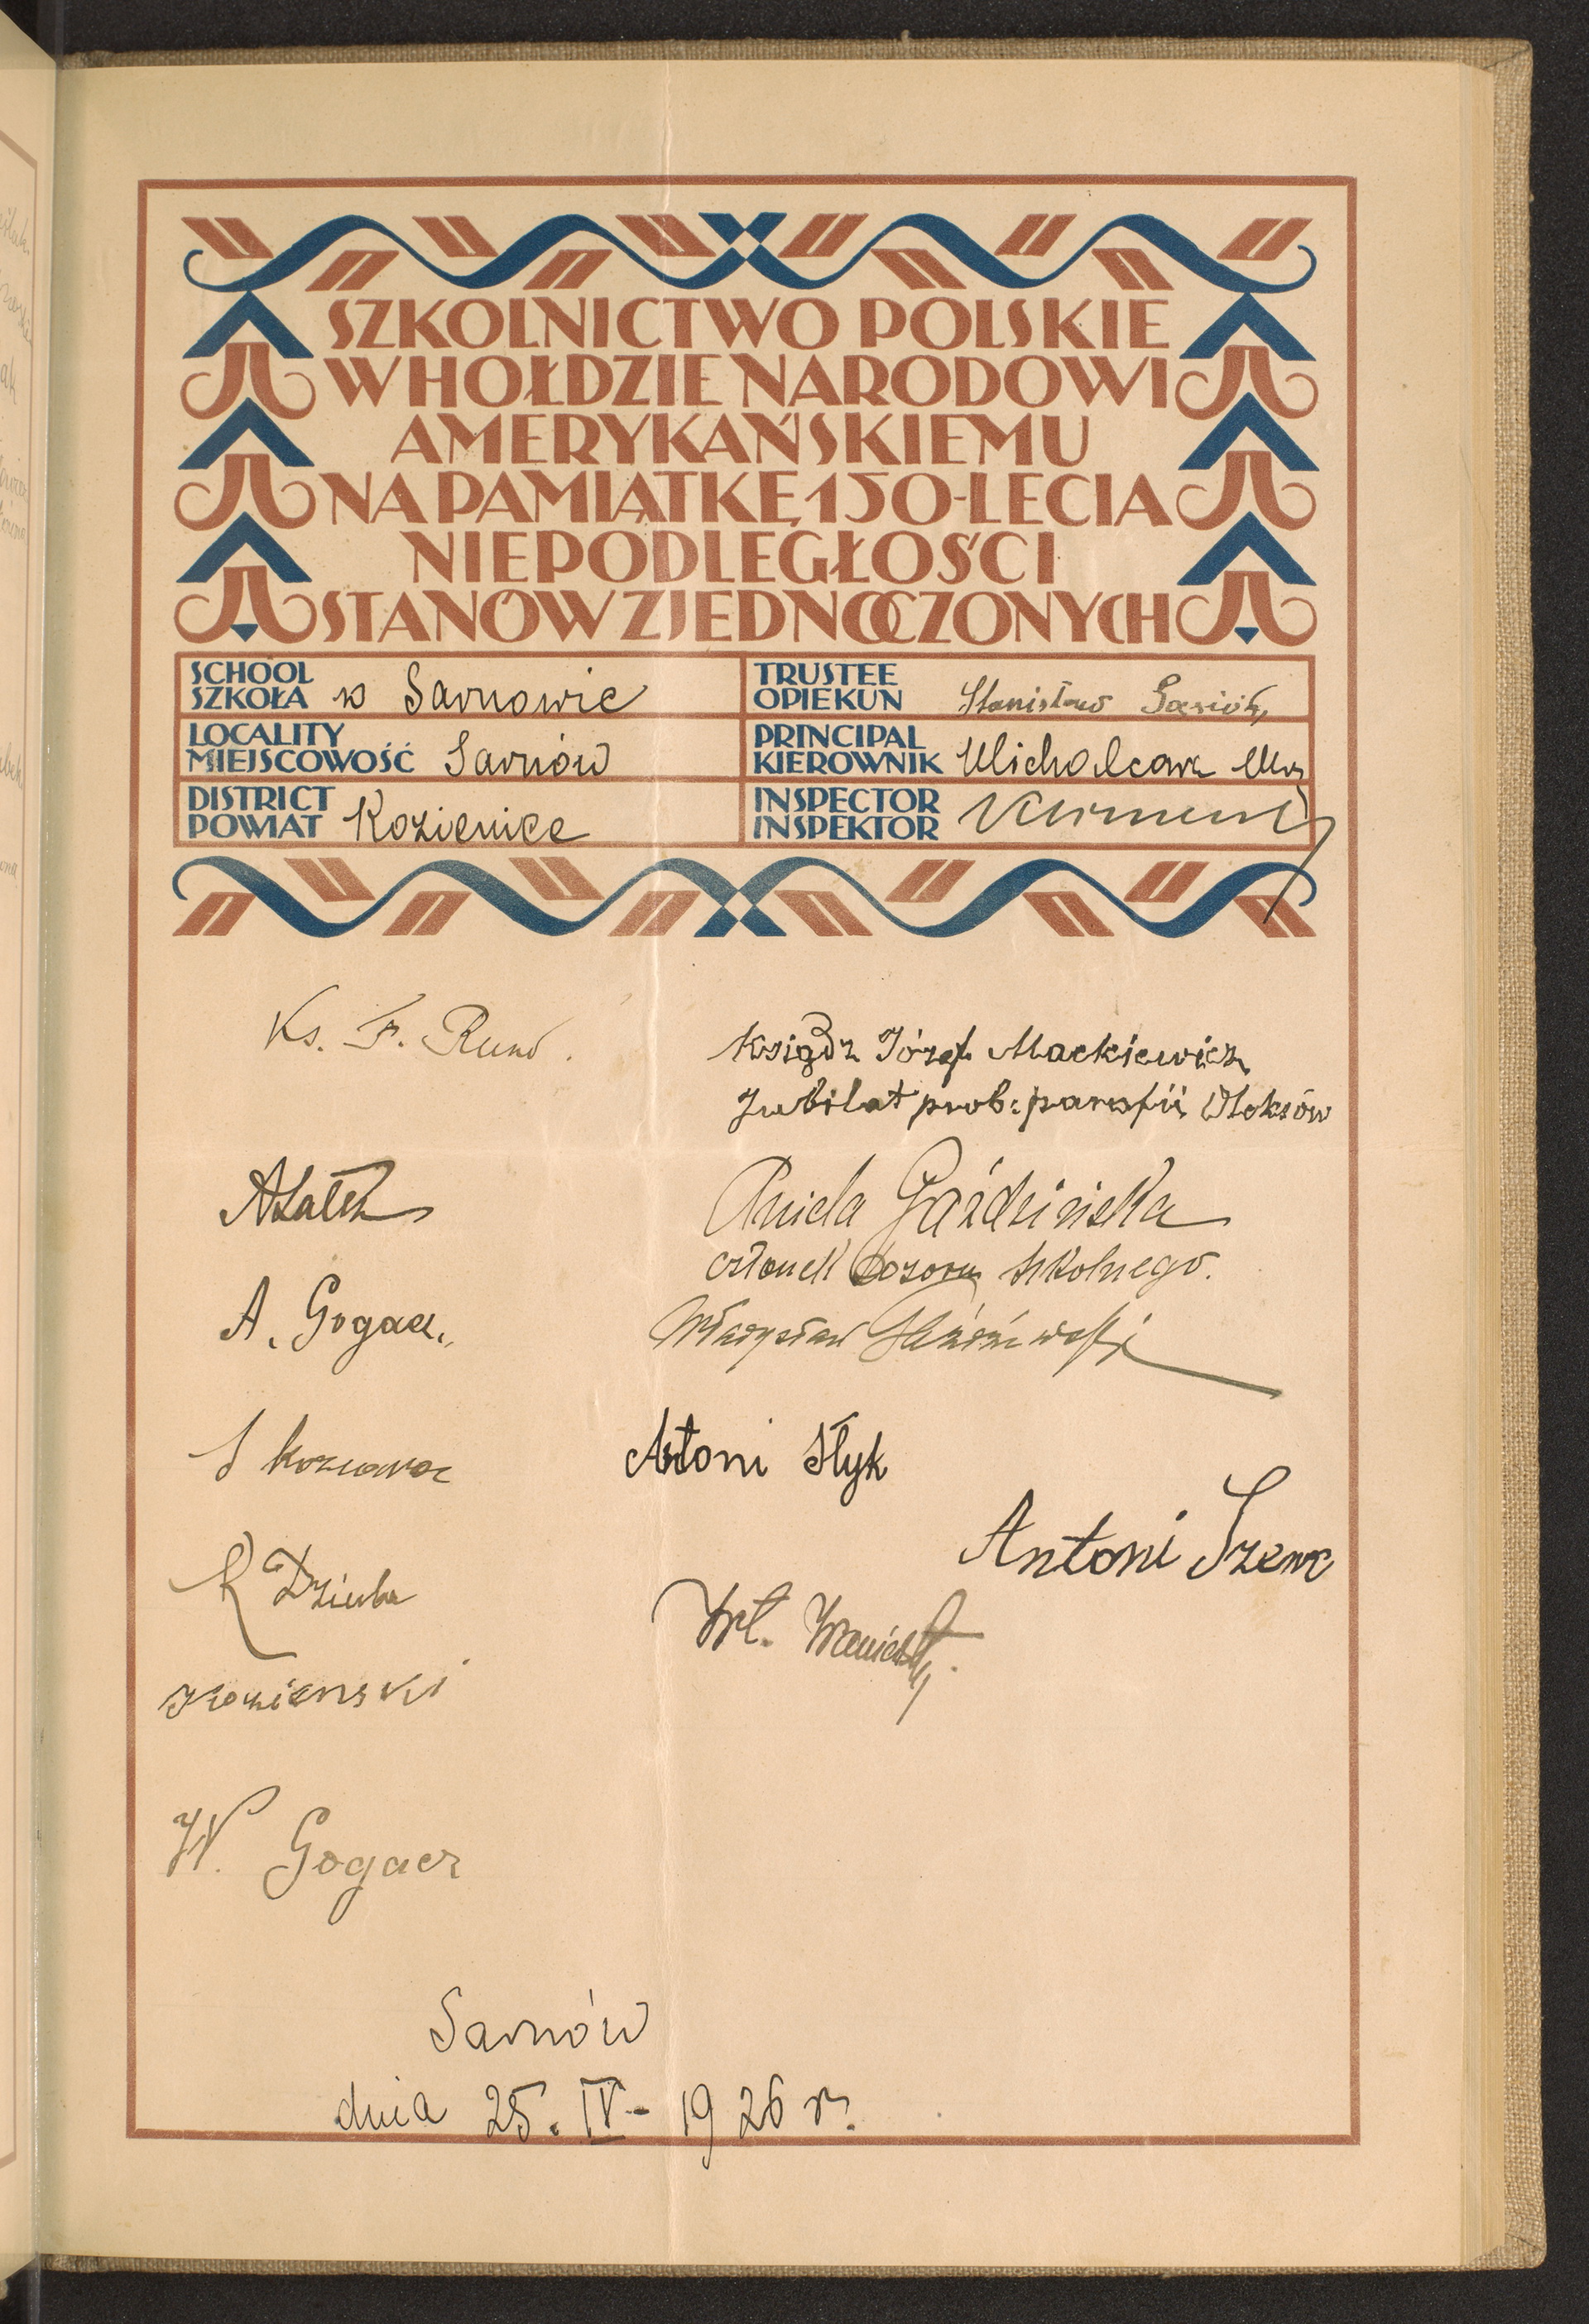 SZKOLNICTWO POLSKIE
W HOŁDZIE NARODOWI
AMERYKAŃSKIEMU
NA PAMIĄTKĘ 150-LECIA
NIEPODLEGŁOŚCI
STANÓW ZJEDNOCZONYCH
SCHOOL
SZKOŁA w Sarnowie
LOCALITY
MIEJSCOWOŚĆ Sarnów
DISTRICT
POWIAT Kozienice
TRUSTEE
OPIEKUN Stanisław
PRINCIPAL
KIEROWNIK
INSPECTOR
INSPEKTOR
Ks. F.
Ksiądz Józef Mackiewicz
Jubilat prob: parafii
A. Gogacz
R Dziuba
W. Gogacz
Aniela Gaździńska
członek Dozoru szkolnego.
Władysław
Antoni Słyk
Antoni Szewc
Wł.
Sarnów
dnia 25. IV - 1926 r.